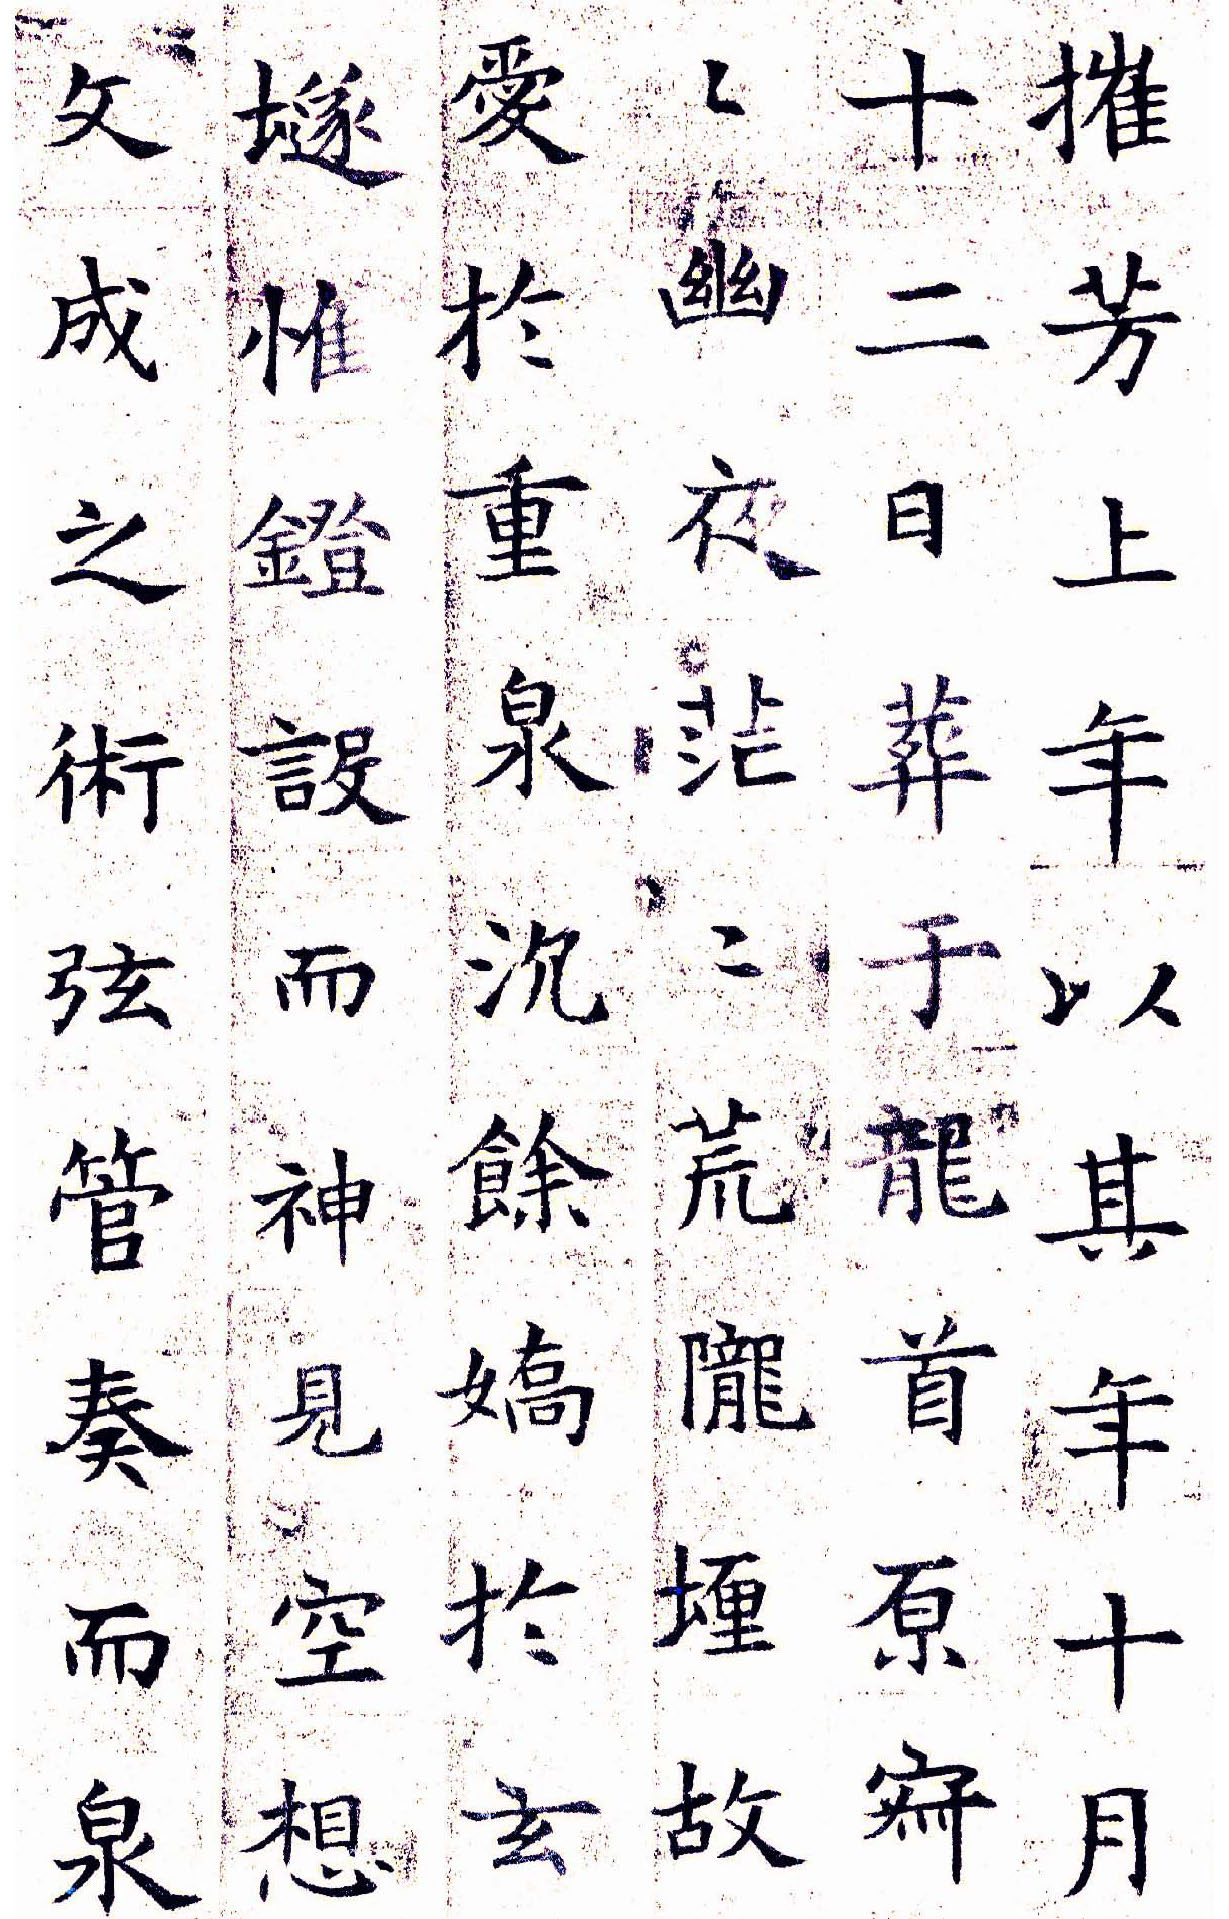 摧芳上年以其年十月
十二日葬于龍首原寂
〻幽夜茫〻荒隴堙故
愛於重泉沉餘嬌於玄
墜惟鐙設而神見空想
文成之術弦管奏而泉